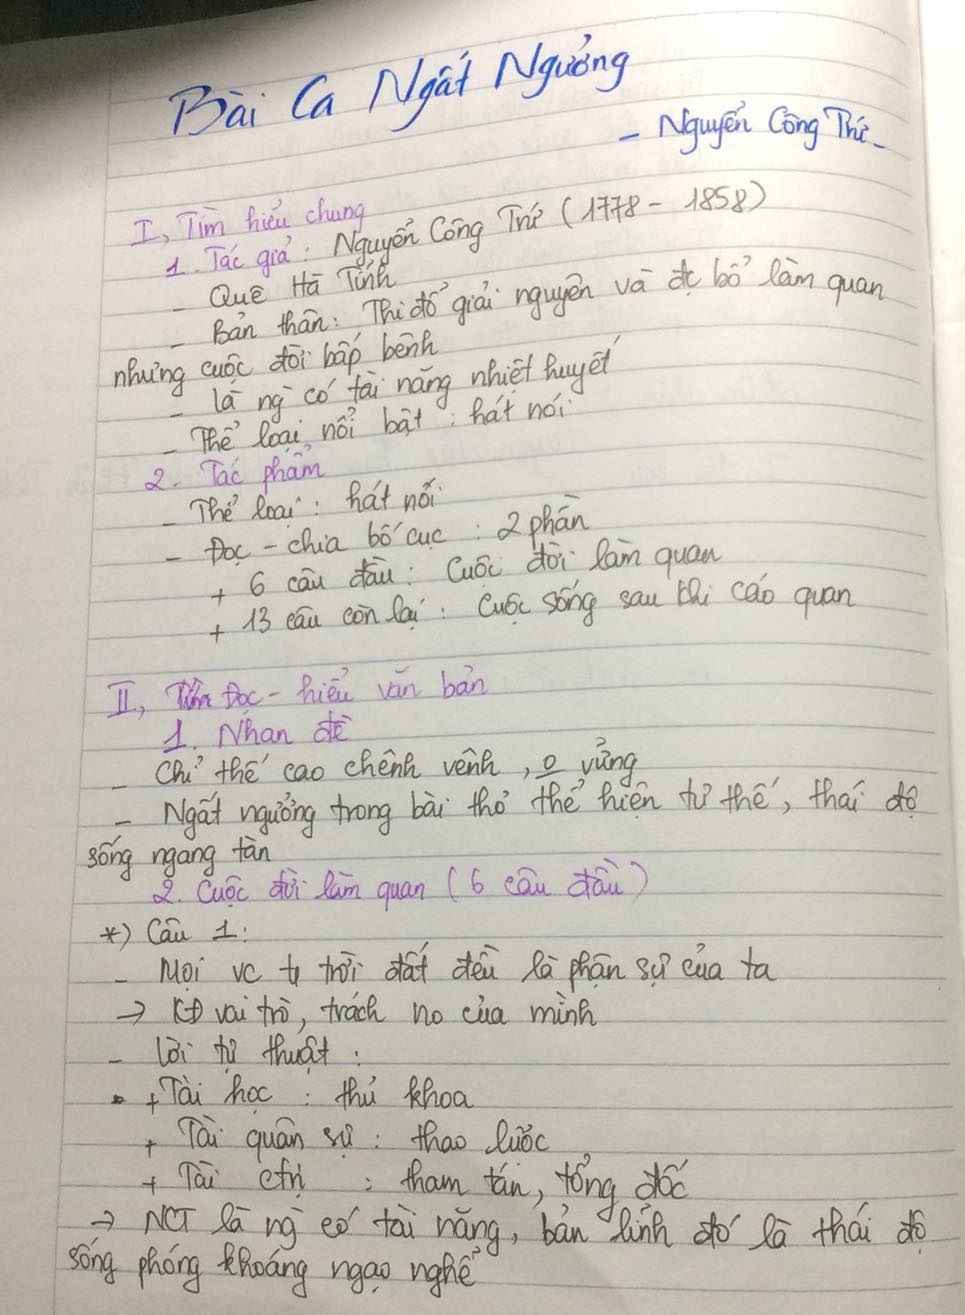 Bài Ca Ngất Ngưởng
- Nguyễn Công Trứ -
I, Tìm hiểu chung
1. Tác giả: Nguyễn Công Trứ (1778 - 1858)
- Quê Hà Tĩnh
- Bản thân: Thi đỗ giải nguyên và đc bổ làm quan
nhưng cuộc đời bấp bênh
- là ng có tài năng nhiệt huyết
- Thể loại nổi bật: hát nói
2. Tác phẩm
- Thể loại: hát nói
- Đọc - chia bố cục: 2 phần
+ 6 câu đầu: Cuộc đời làm quan
+ 13 câu còn lại: Cuộc sống sau khi cáo quan
II, Đọc - hiểu văn bản
1. Nhan đề
- Chỉ thế cao chênh vênh, o vững
- Ngất ngưởng trong bài thơ thể hiện tư thế, thái độ
sống ngang tàn
2. Cuộc đời làm quan (6 câu đầu)
*) Câu 1:
- Mọi vc tr trời đất đều là phận sự của ta
→ KĐ vai trò, trách no của mình
- Lời tự thuật:
+ Tài học: thủ khoa
+ Tài quân sự: thao lược
+ Tài ctrị: tham tán, tổng đốc
→ NCT là ng có tài năng, bản lĩnh đó là thái độ
sống phóng khoáng ngạo nghễ